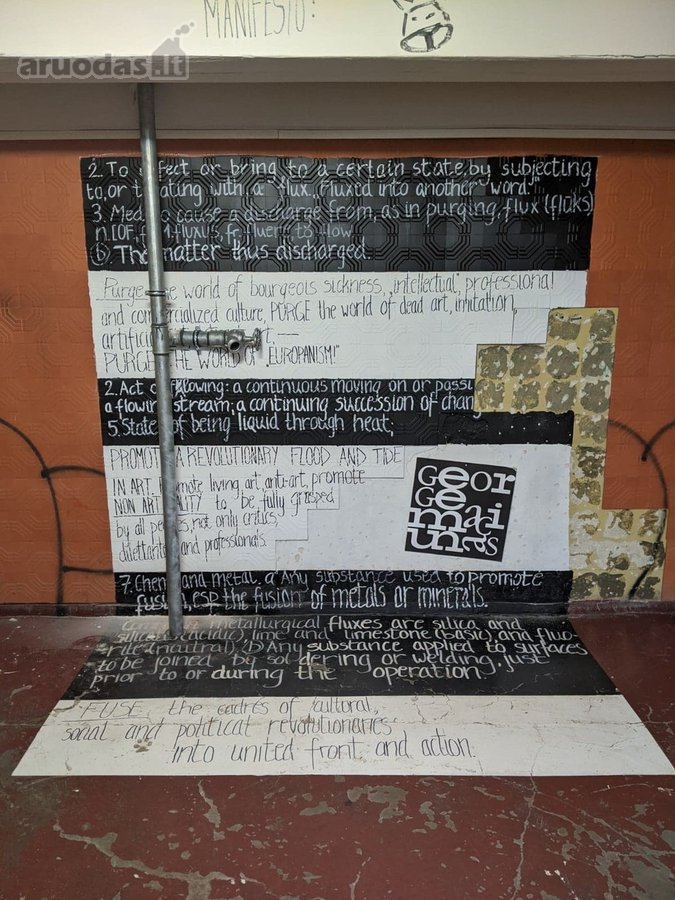 MANIFESTO:
aruodas.lt
2. To affect or bring to a certain state, by subjecting
to, or treating with a "flux". "Fluxed into another word."
3. Med. To cause a discharge from, as in purging, flux (flŭks)
n. [OF., fr. fluxus, fr. fluere to flow
b The matter thus discharged.
Purge the world of bourgeois sickness, "intellectual", professional
and commercialized culture, PURGE the world of dead art, imitation,
artificial art, —
PURGE THE WORLD OF "EUROPANISM!"
2. Act of flowing: a continuous moving on or passing
a flowing stream; a continuing succession of chan
5. State of being liquid through heat;
PROMOTE A REVOLUTIONARY FLOOD AND TIDE
IN ART, Promote living art, anti-art, promote
NON ART REALITY to be fully grasped
by all peoples, not only critics,
dilettantes and professionals.
GeorGe maciunas
7. Chem. and metal. a Any substance used to promote
fusion, esp. the fusion of metals or minerals.
Common metallurgical fluxes are silica and
silicates (acidic), lime and limestone (basic), and fluo-
rite (neutral). b) Any substance applied to surfaces
to be joined by soldering or welding, just
prior to or during the operation
FUSE the cadres of cultural,
social and political revolutionaries
into united front and action.